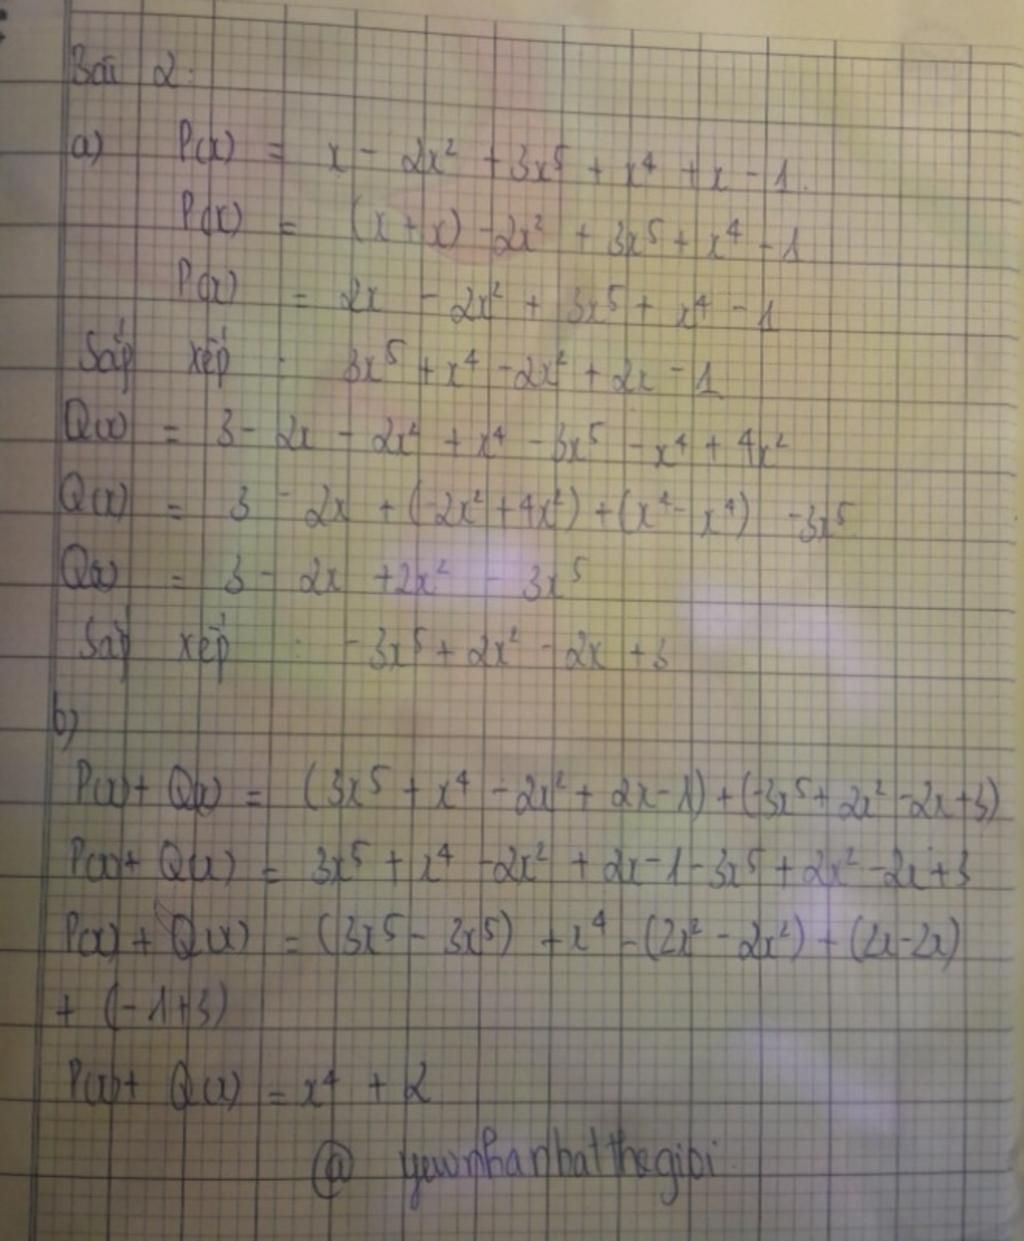 Bài 2:
a) P(x) = x - 2x² + 3x⁵ + x⁴ + x - 1.
P(x) = (x + x) - 2x² + 3x⁵ + x⁴ - 1
P(x) = 2x - 2x² + 3x⁵ + x⁴ - 1
Sắp xếp : 3x⁵ + x⁴ - 2x² + 2x - 1
Q(x) = 3 - 2x - 2x² + x⁴ - 3x⁵ - x⁴ + 4x²
Q(x) = 3 - 2x + (-2x² + 4x²) + (x⁴ - x⁴) - 3x⁵
Q(x) = 3 - 2x + 2x² - 3x⁵
Sắp xếp : - 3x⁵ + 2x² - 2x + 3
b)
P(x) + Q(x) = (3x⁵ + x⁴ - 2x² + 2x - 1) + (-3x⁵ + 2x² - 2x + 3)
P(x) + Q(x) = 3x⁵ + x⁴ - 2x² + 2x - 1 - 3x⁵ + 2x² - 2x + 3
P(x) + Q(x) = (3x⁵ - 3x⁵) + x⁴ - (2x² - 2x²) + (2x - 2x)
+ (-1 + 3)
P(x) + Q(x) = x⁴ + 2